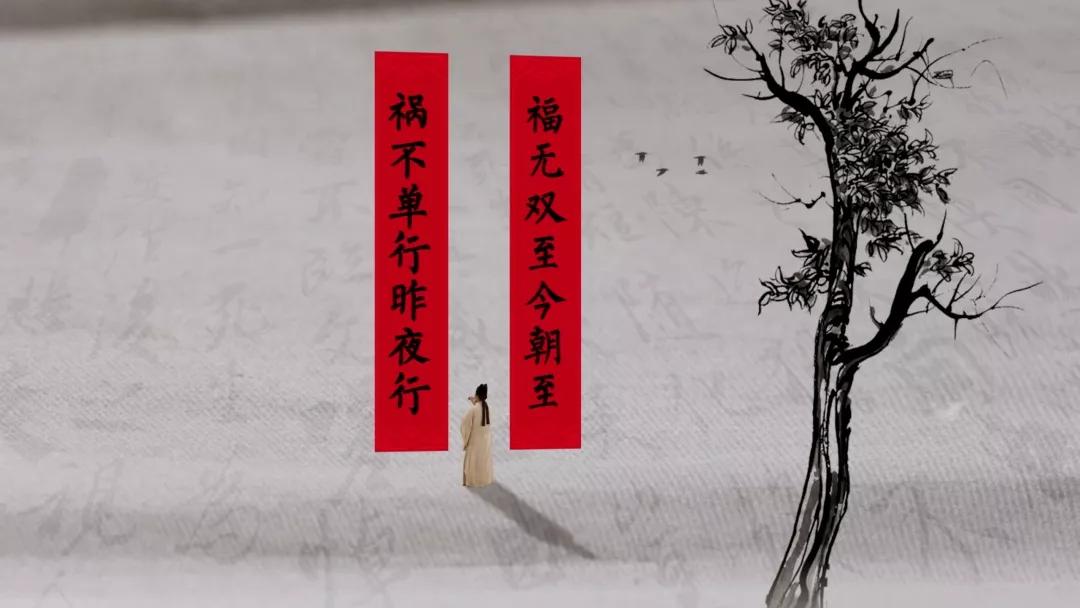 福无双至今朝至
祸不单行昨夜行